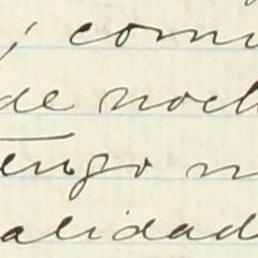 ; comi
de noch
engo n
alidad